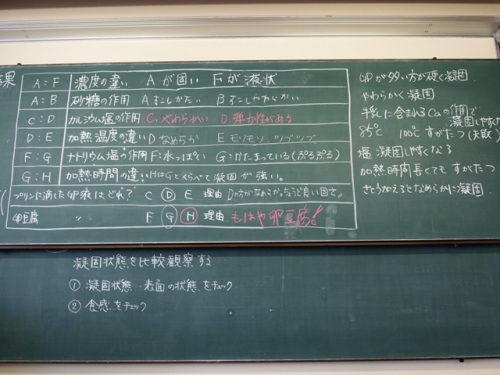 結果
A:F 濃度の違い Aが固い Fが液状
A:B 砂糖の作用 Aすこしかたい Bすこしやわらかい
C:D カルシウム塩の作用 C:やわらかい D 弾力性がある
D:E 加熱温度の違い D なめらか E モソモソ ツブツブ
F:G ナトリウム塩の作用 F:水っぽい G:かたまっている(ぷるぷる)
G:H 加熱時間の違い HはGとくらべて凝固が強い。
プリンに適した卵液はどれ? C D E 理由
卵豆腐 〃 F G H 理由 もはや卵豆腐!
卵が多い方が硬く凝固
やわらかく凝固
牛乳に含まれるCaの作用で
凝固しやすく
85℃ 100℃すがたつ(失敗)
塩 凝固しやすくなる
加熱時間長くてもすがたつ
さとう加えるとなめらかに凝固
凝固状態を比較観察する
① 凝固状態 表面の状態をチェック
② 食感をチェック